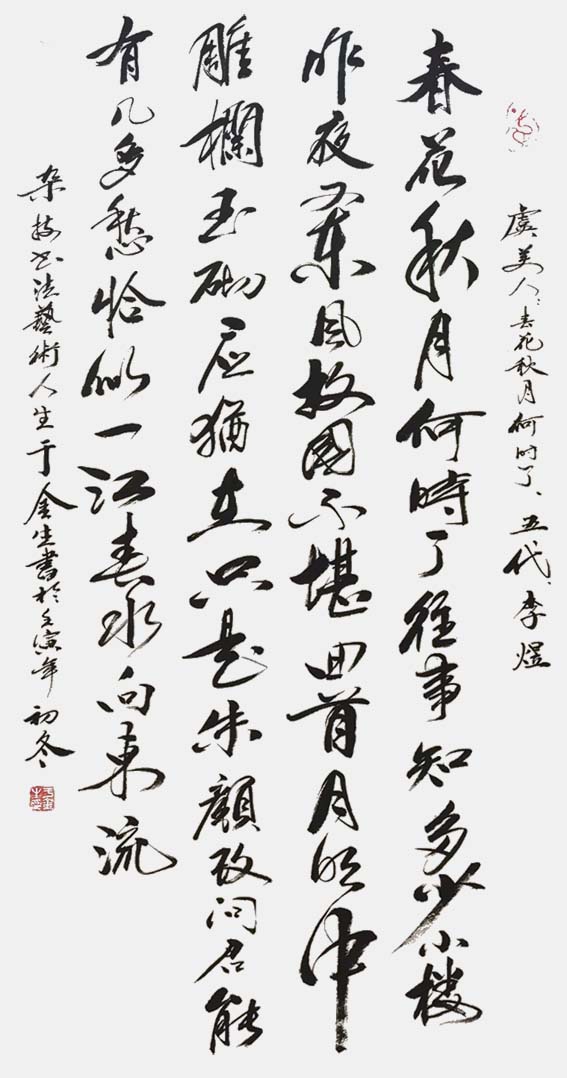 虞美人：春花秋月何时了、五代、李煜
春花秋月何時了往事知多少小楼
昨夜又東風故國不堪回首月明中
雕欄玉砌应猶在只是朱顏改问君能
有几多愁恰似一江春水向東流
杂技书法藝術人生于金生書於壬寅年初冬